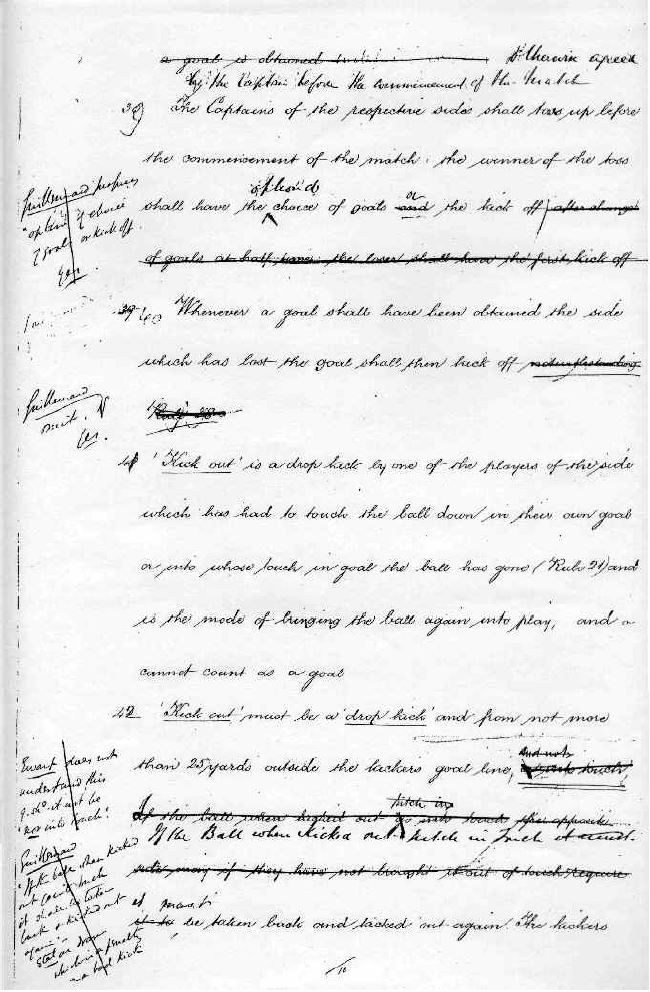 a goal is obtained otherwise agreed
by the Captains before the commencement of the Match
39) The Captains of the respective sides shall toss up before
the commencement of the match: the winner of the toss
option of
shall have the choice of goals and or the kick off after change
of goals at half time the loser shall have the first kick off
Guillemard proposes
"option" of choice
of goals or kick off.
Yes
39 40 Whenever a goal shall have been obtained the side
which has lost the goal shall then kick off notwithstanding
Guillemard
omit.
Yes.
41 'Kick out' is a drop kick by one of the players of the side
which has had to touch the ball down in their own goal
or into whose touch in goal the ball has gone (Rule 21) and
is the mode of bringing the ball again into play, and
cannot count as a goal
42 'Kick out' must be a 'drop kick' and from not more
and not
than 25 yards outside the kickers goal line, into touch,
pitch in
If the ball when kicked out is into touch the opposite
If the Ball when kicked out pitch in touch it must
side may if they have not brought it out of touch require
it must
it to be taken back and kicked out again The kickers
Ewart does not
understand this
"not into touch"
Guillemard
"If the ball when kicked
out
it shall be taken
back & kicked out
again"
a bad kick
10